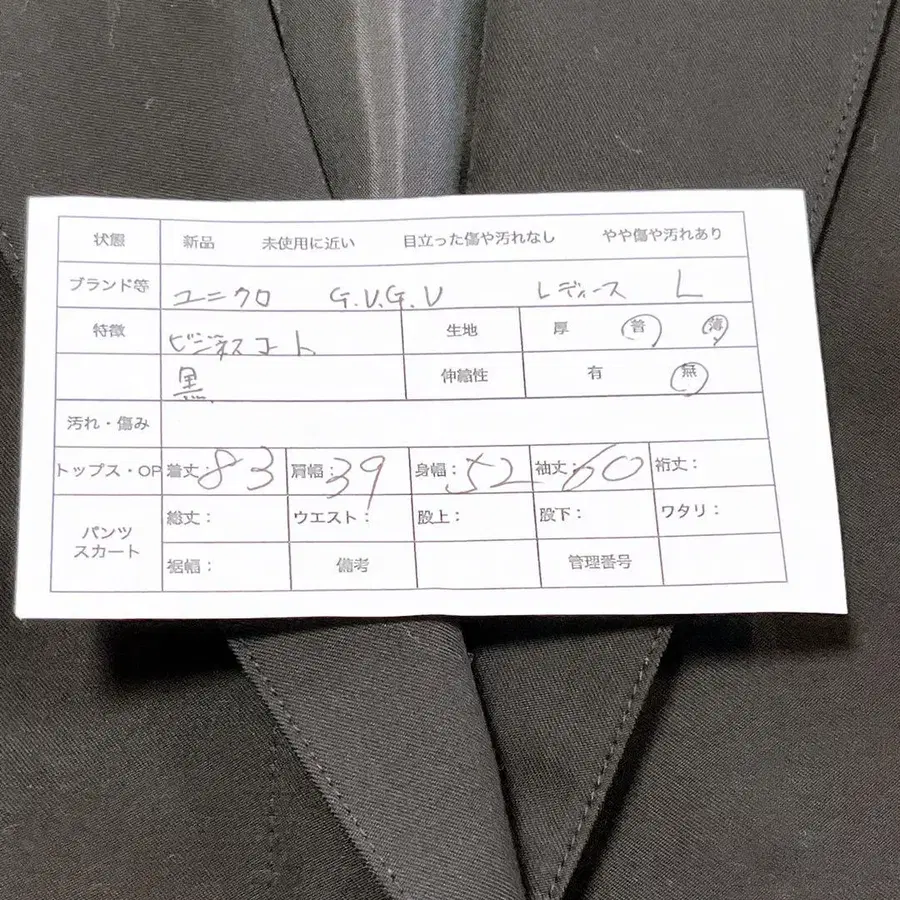 状態 新品 未使用に近い 目立った傷や汚れなし やや傷や汚れあり
ブランド等 ユニクロ G.V.G.V レディース L
特徴 ビジネスコート 生地 厚 普 薄
黒 伸縮性 有 無
汚れ・傷み
トップス・OP 着丈：83 肩幅：39 身幅：52 袖丈：60 裄丈：
パンツ スカート 総丈： ウエスト： 股上： 股下： ワタリ：
裾幅： 備考 管理番号